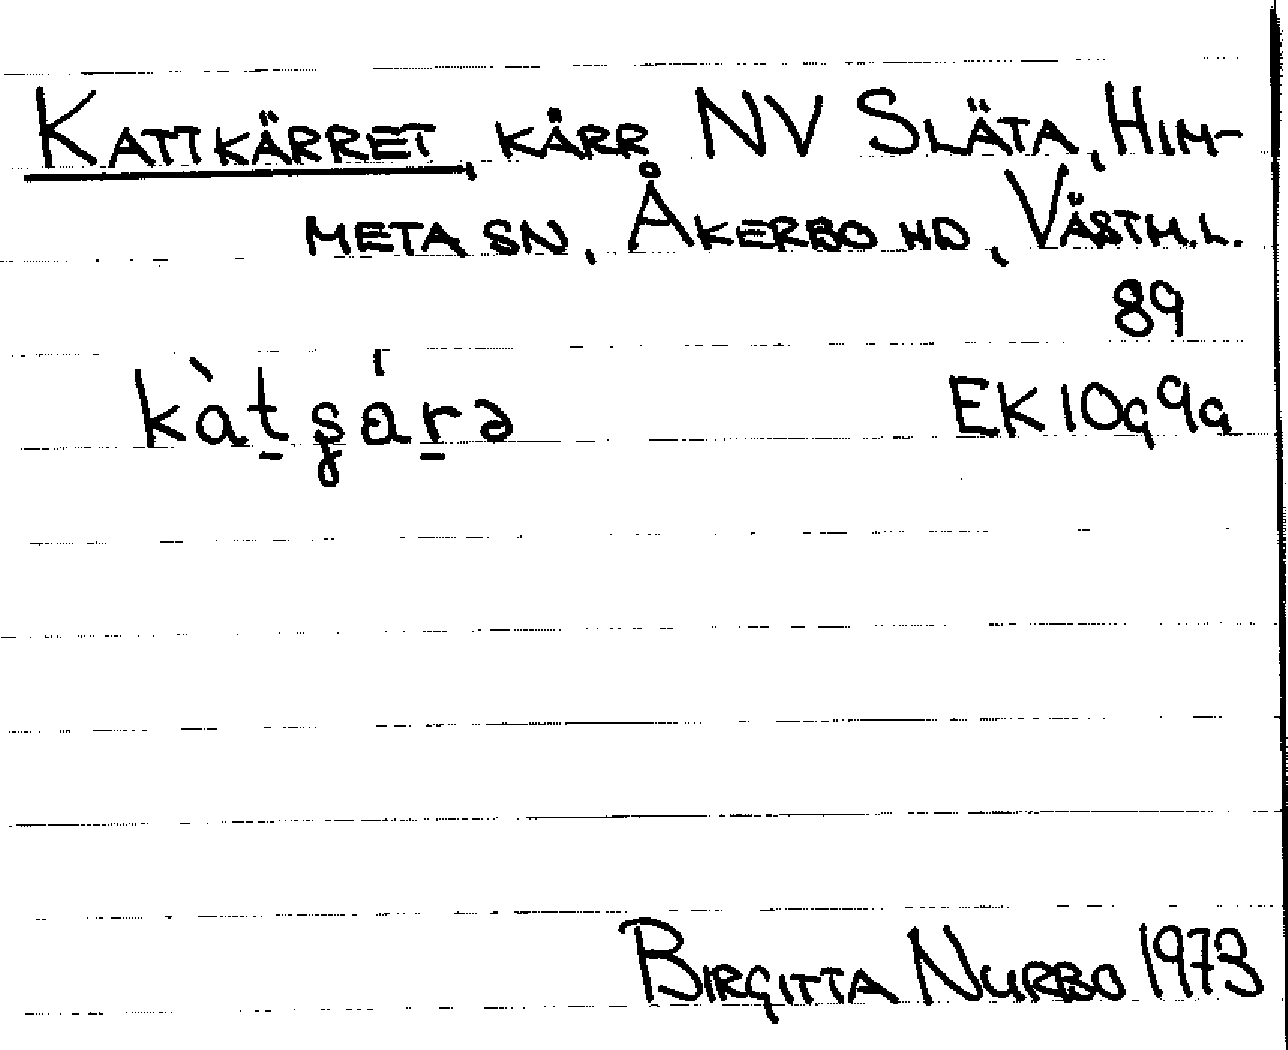 KATTKÄRRET, KÄRR NV SLÄTA, HIM-
META SN, ÅKERBO HD, VÄSTM.L.
89
EK 10g9a
BIRGITTA NURBO 1973